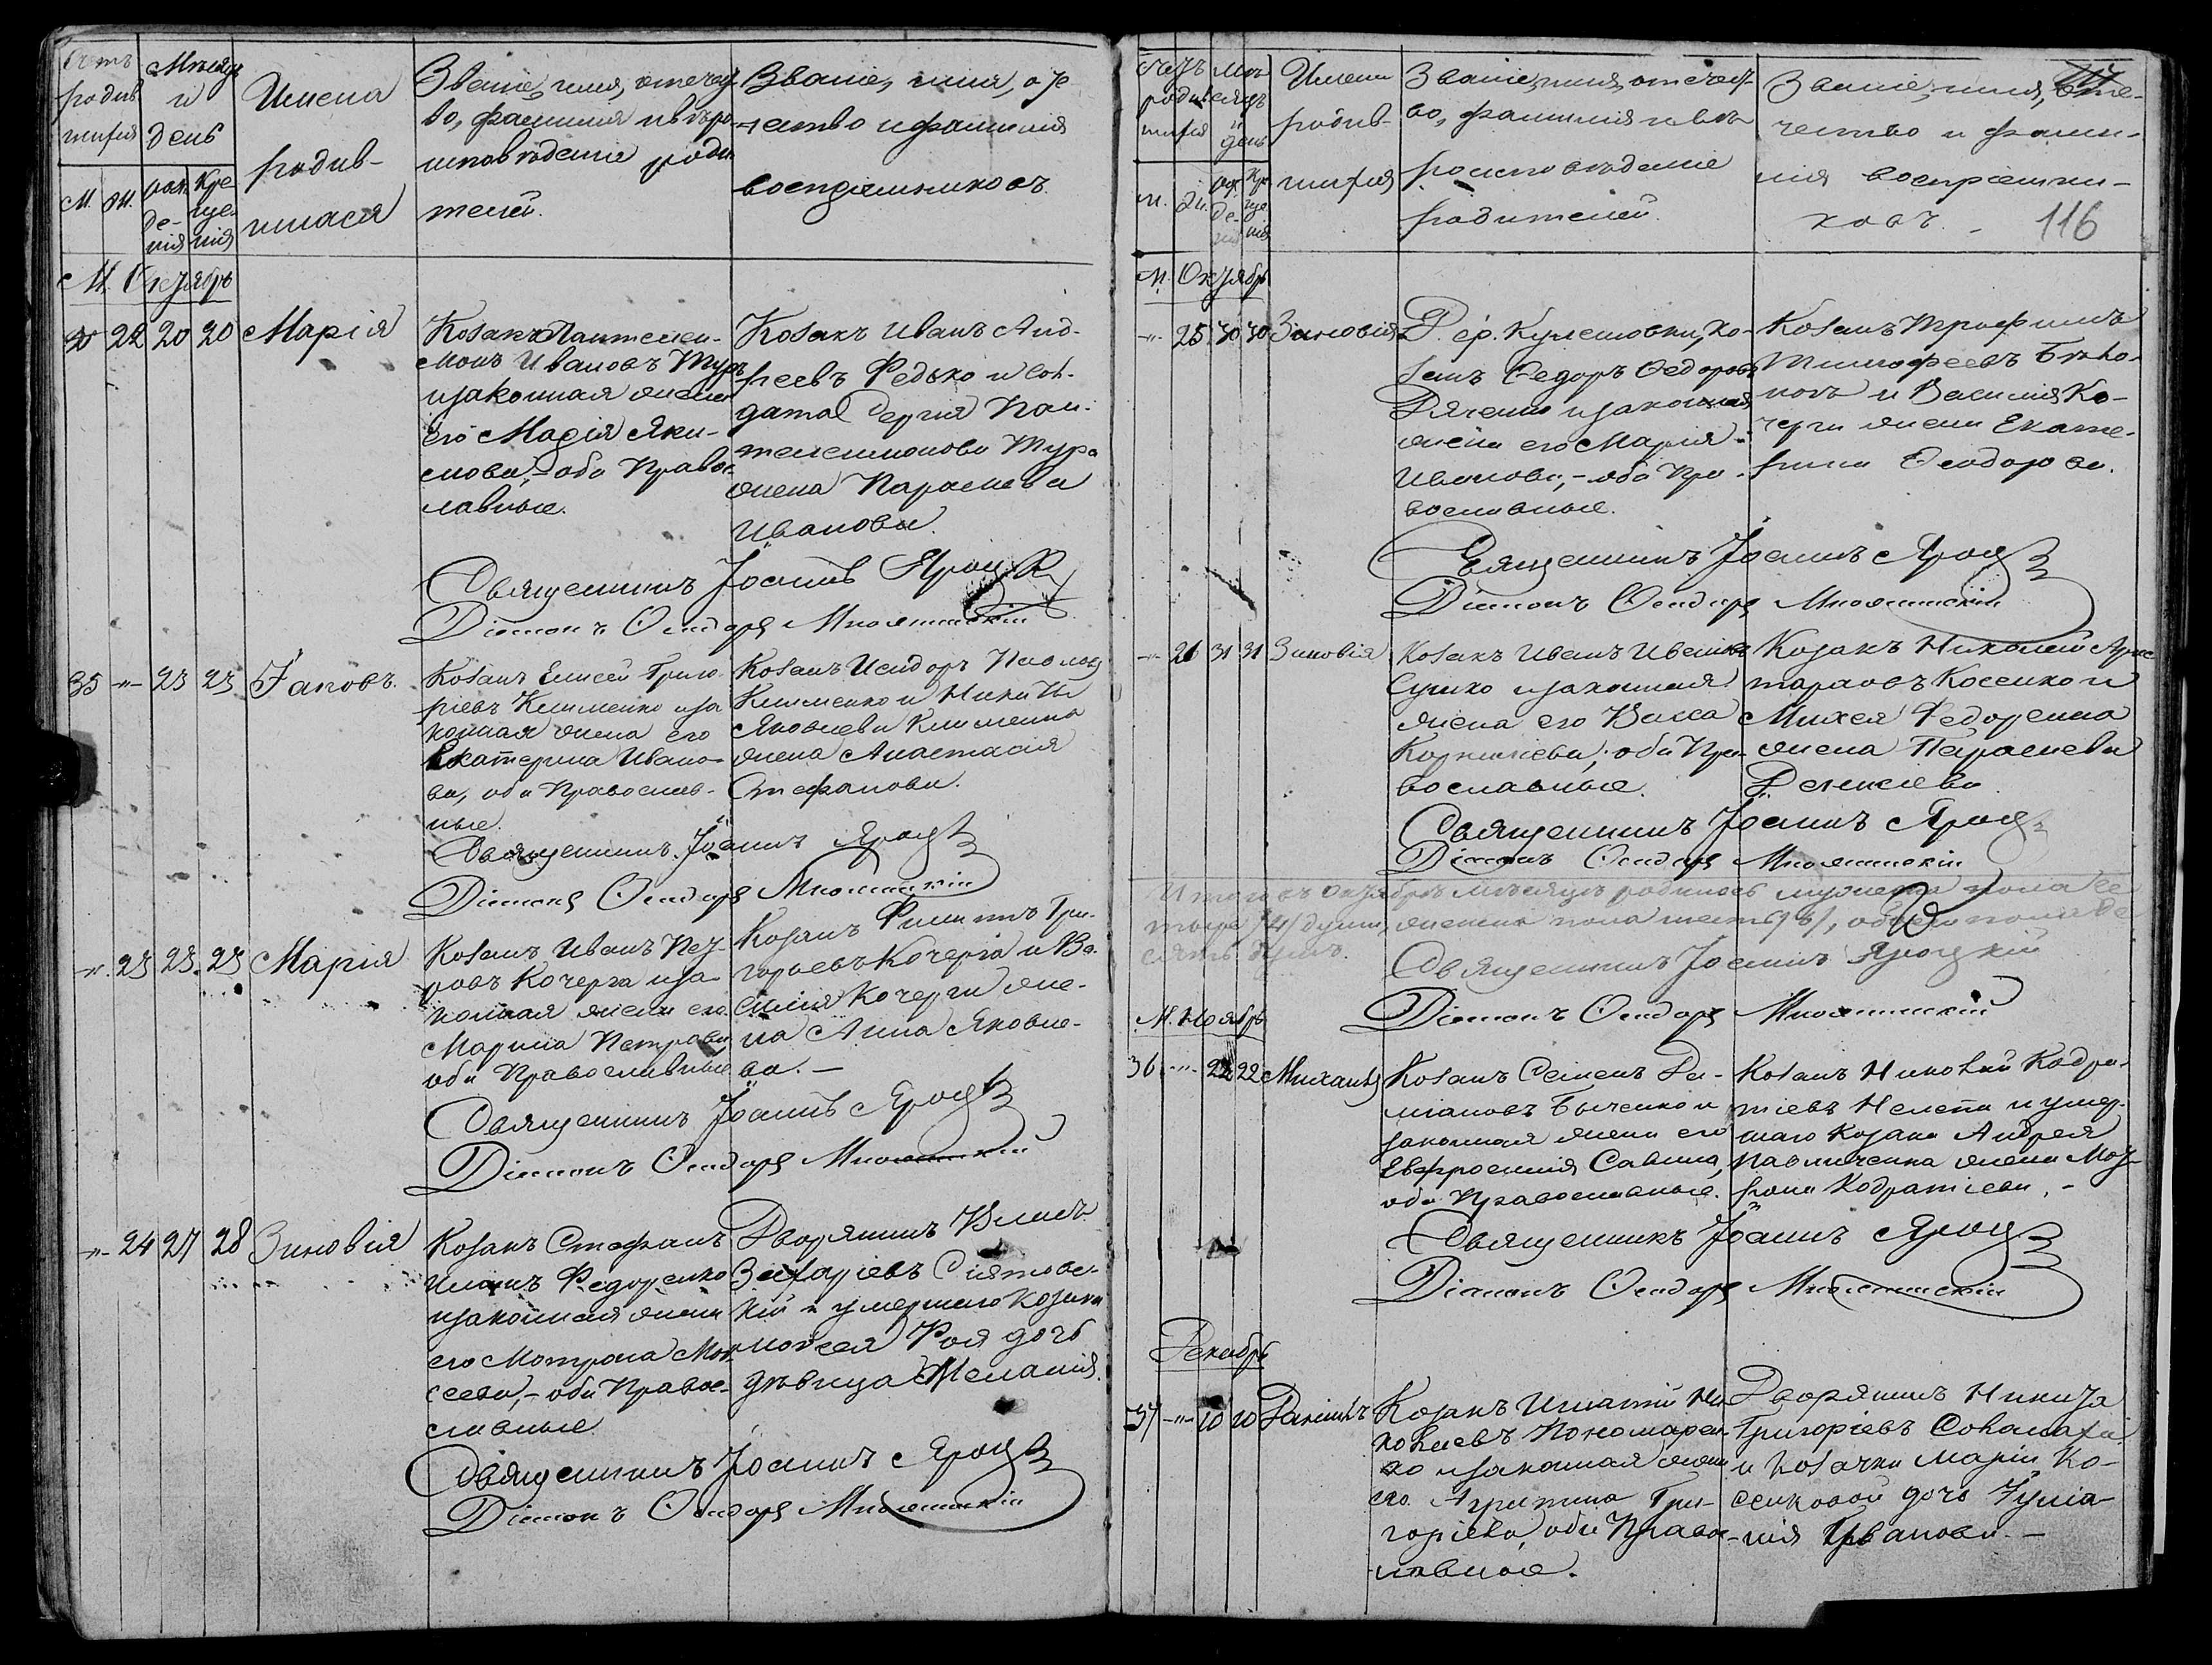 Счетъ родив шихся
Мѣсяцъ и день
М. Ж. рож де- нія Кре ще- нія
Имена родив- шихся
Званіе, имя, отечес во, фамилія и вѣро исповѣданіе роди телей.
Званіе, имя, оте чество и фамилія воспріемниковъ.
М. Октябрь
22 20 20 Марія
Козакъ Пантелей-
монъ Ивановъ Туръ
и законная жена
его Марія Яки-
мова, оба Право-
лавные.
Козакъ Иванъ Анд-
реевъ Федько и сол-
дата Сергія Пан-
телеимонова Тура
жена Параскева
Иванова.
Священникъ Іоаннъ Яроцкій
Діаконъ Ѳеодоръ
35 -"- 23 23 Іаковъ.
Козакъ Елисей Григо
ріевъ Клименко и за
конная жена его
Екатерина Ивано-
ва, оба Православ-
ные.
Козакъ Исидоръ Павловъ
Клименко и Никиты
Яковлева Клименка
жена Анастасія
Стефанова.
Священникъ Іоаннъ Яроцкій
Діаконъ Ѳеодоръ
-"- 23 23 23 Марія
Козакъ Иванъ Пет-
ровъ Кочерга и за-
конная жена его
Марина Петрова
оба Православные
Козакъ Филиппъ Гри-
горьевъ Кочерга и Ва-
силія Кочерги же-
на Анна Яковле-
ва. —
Священникъ Іоаннъ Яроцкій
Діаконъ Ѳеодоръ
-"- 24 27 28 Зиновія
Козакъ Стефанъ
Федоренко
и законная жена
его Мотрона Мои
сеева, - оба Право-
славные
Дворянинъ
Захаріевъ
кій и умершаго Козака
Моисея Роя дочь
дѣвица Меланія.
Священникъ Іоаннъ Яроцкій
Діаконъ Ѳеодоръ
Счетъ родив шихся
Мѣ сяцъ и день
М. Ж. рож де- нія Кре ще нія
Имена родив- шихся
Званіе, имя, отечест- во, фамилія и вѣ роисповѣданіе родителей.
Званіе, имя, оте- чество и фами- лія воспріемни- ковъ. -
116
М. Октябрь
-"- 25 30 30 Зиновія
Д. ер. Кулешовки, Ко-
закъ Ѳедоръ Ѳедоровъ
Дяченко и законная
жена его Марія
Иванова, - оба Пра-
вославные.
Козакъ Трофимъ
Тимофеевъ
и Василія Ко-
черги жена Екате-
рина Ѳеодорова.
Священникъ Іоаннъ Яроцкій
Діаконъ Ѳеодоръ
-"- 26 31 31 Зиновія
Козакъ Иванъ Ивановъ
Сушко и законная
жена его Васса
Корнилева, оба Пра-
вославные.
Козакъ Николай Арис
тарховъ Косенко и
Михея Федоренка
жена Параскева
Священникъ Іоаннъ Яроцкій
Діаконъ Ѳеодоръ
Итого въ октябрѣ мѣсяцѣ родилось мужеска пола че
тыре /4/ души, женска пола шесть /6/, обоего пола де
сять душъ.
Священникъ Іоаннъ Яроцкій
Діаконъ Ѳеодоръ
М. Ноябрь
36 -"- 22 22 Михаилъ
Козакъ Семенъ Да-
міановъ Быченко и
законная жена его
Евфросинія Савина,
оба Православные.
Козакъ Николай Кодра-
тіевъ Нелепа и умер-
шаго Козака Андрея
Павличенка жена Мот-
рона Кодратіева. -
Священникъ Іоаннъ Яроцкій
Діаконъ Ѳеодоръ
Декабрь
37 -"- 10 10 Даніилъ
Козакъ Игнатій Ни
колаевъ Пономарен-
ко и законная жена
его Агрипина Гри-
горіева, оба Право-
лавные.
Дворянинъ Никита
Григоріевъ
и козачки Маріи Ко-
сенковой дочь Іуліа-
нія Иванова. —